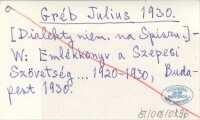 Gréb Julius 1930.
[Dialekty niem. na Spiszu.] -
W: Emlékkönyv a Szepesi
Szövetség... 1920-1930, Buda-
pest 1930.